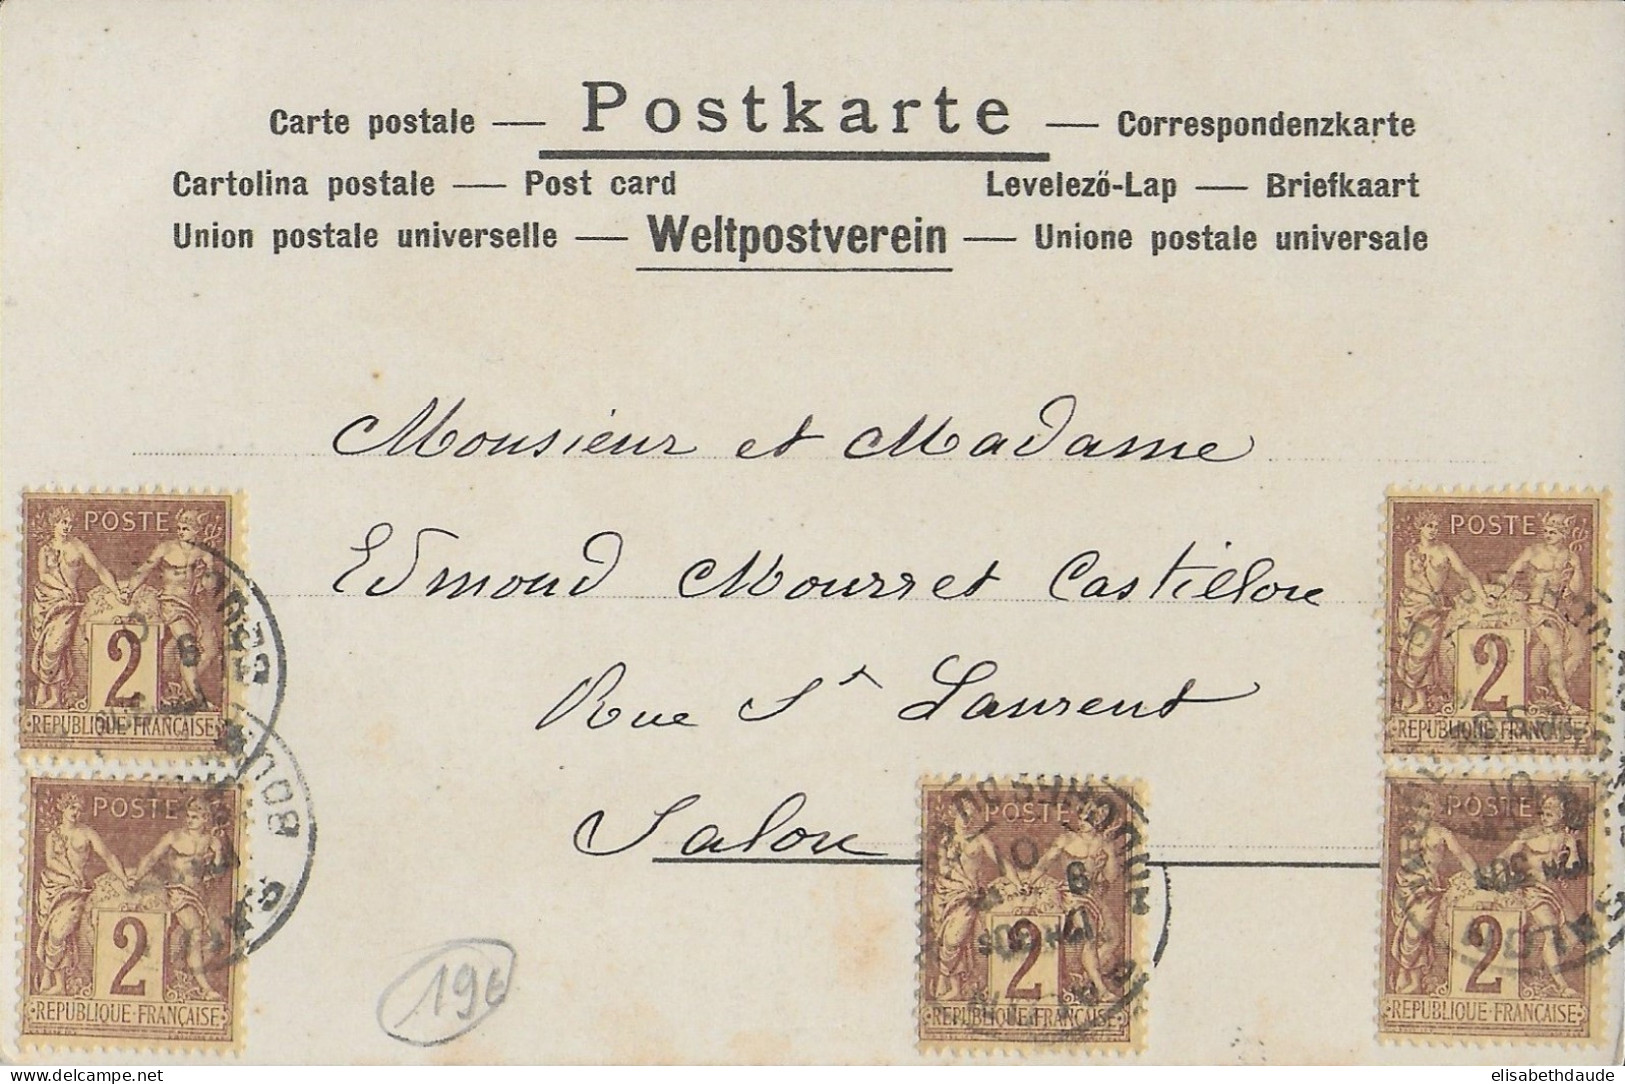 Carte postale — Postkarte — Correspondenzkarte
Cartolina postale — Post card Levelező-Lap — Briefkaart
Union postale universelle — Weltpostverein — Unione postale universale
Monsieur et Madame
Edmond Mourret Castillon
Rue St Laurent
Salon
POSTE
2
REPUBLIQUE FRANÇAISE
POSTE
2
REPUBLIQUE FRANÇAISE
POSTE
2
REPUBLIQUE FRANÇAISE
POSTE
2
REPUBLIQUE FRANÇAISE
2
REPUBLIQUE FRANÇAISE
www.delcampe.net
elisabethdaude